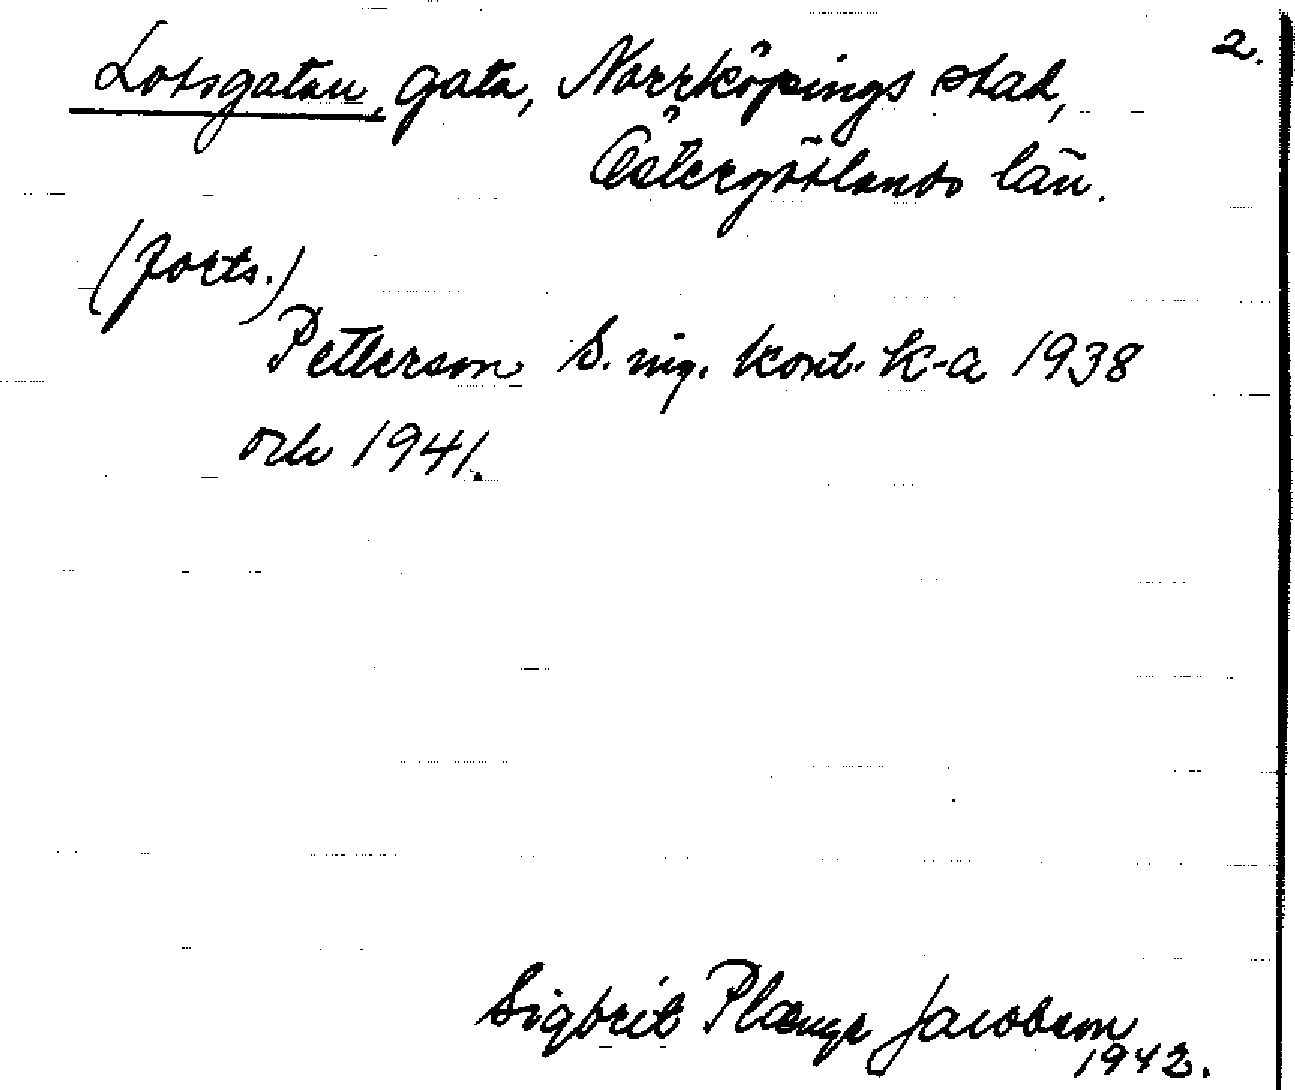 2.
Lotsgatan, gata, Norrköpings stad,
Östergötlands län.
(forts.)
Petterson S. ing. kont. k-a 1938
och 1941.
Sigbrit Plænge Jacobson
1942.